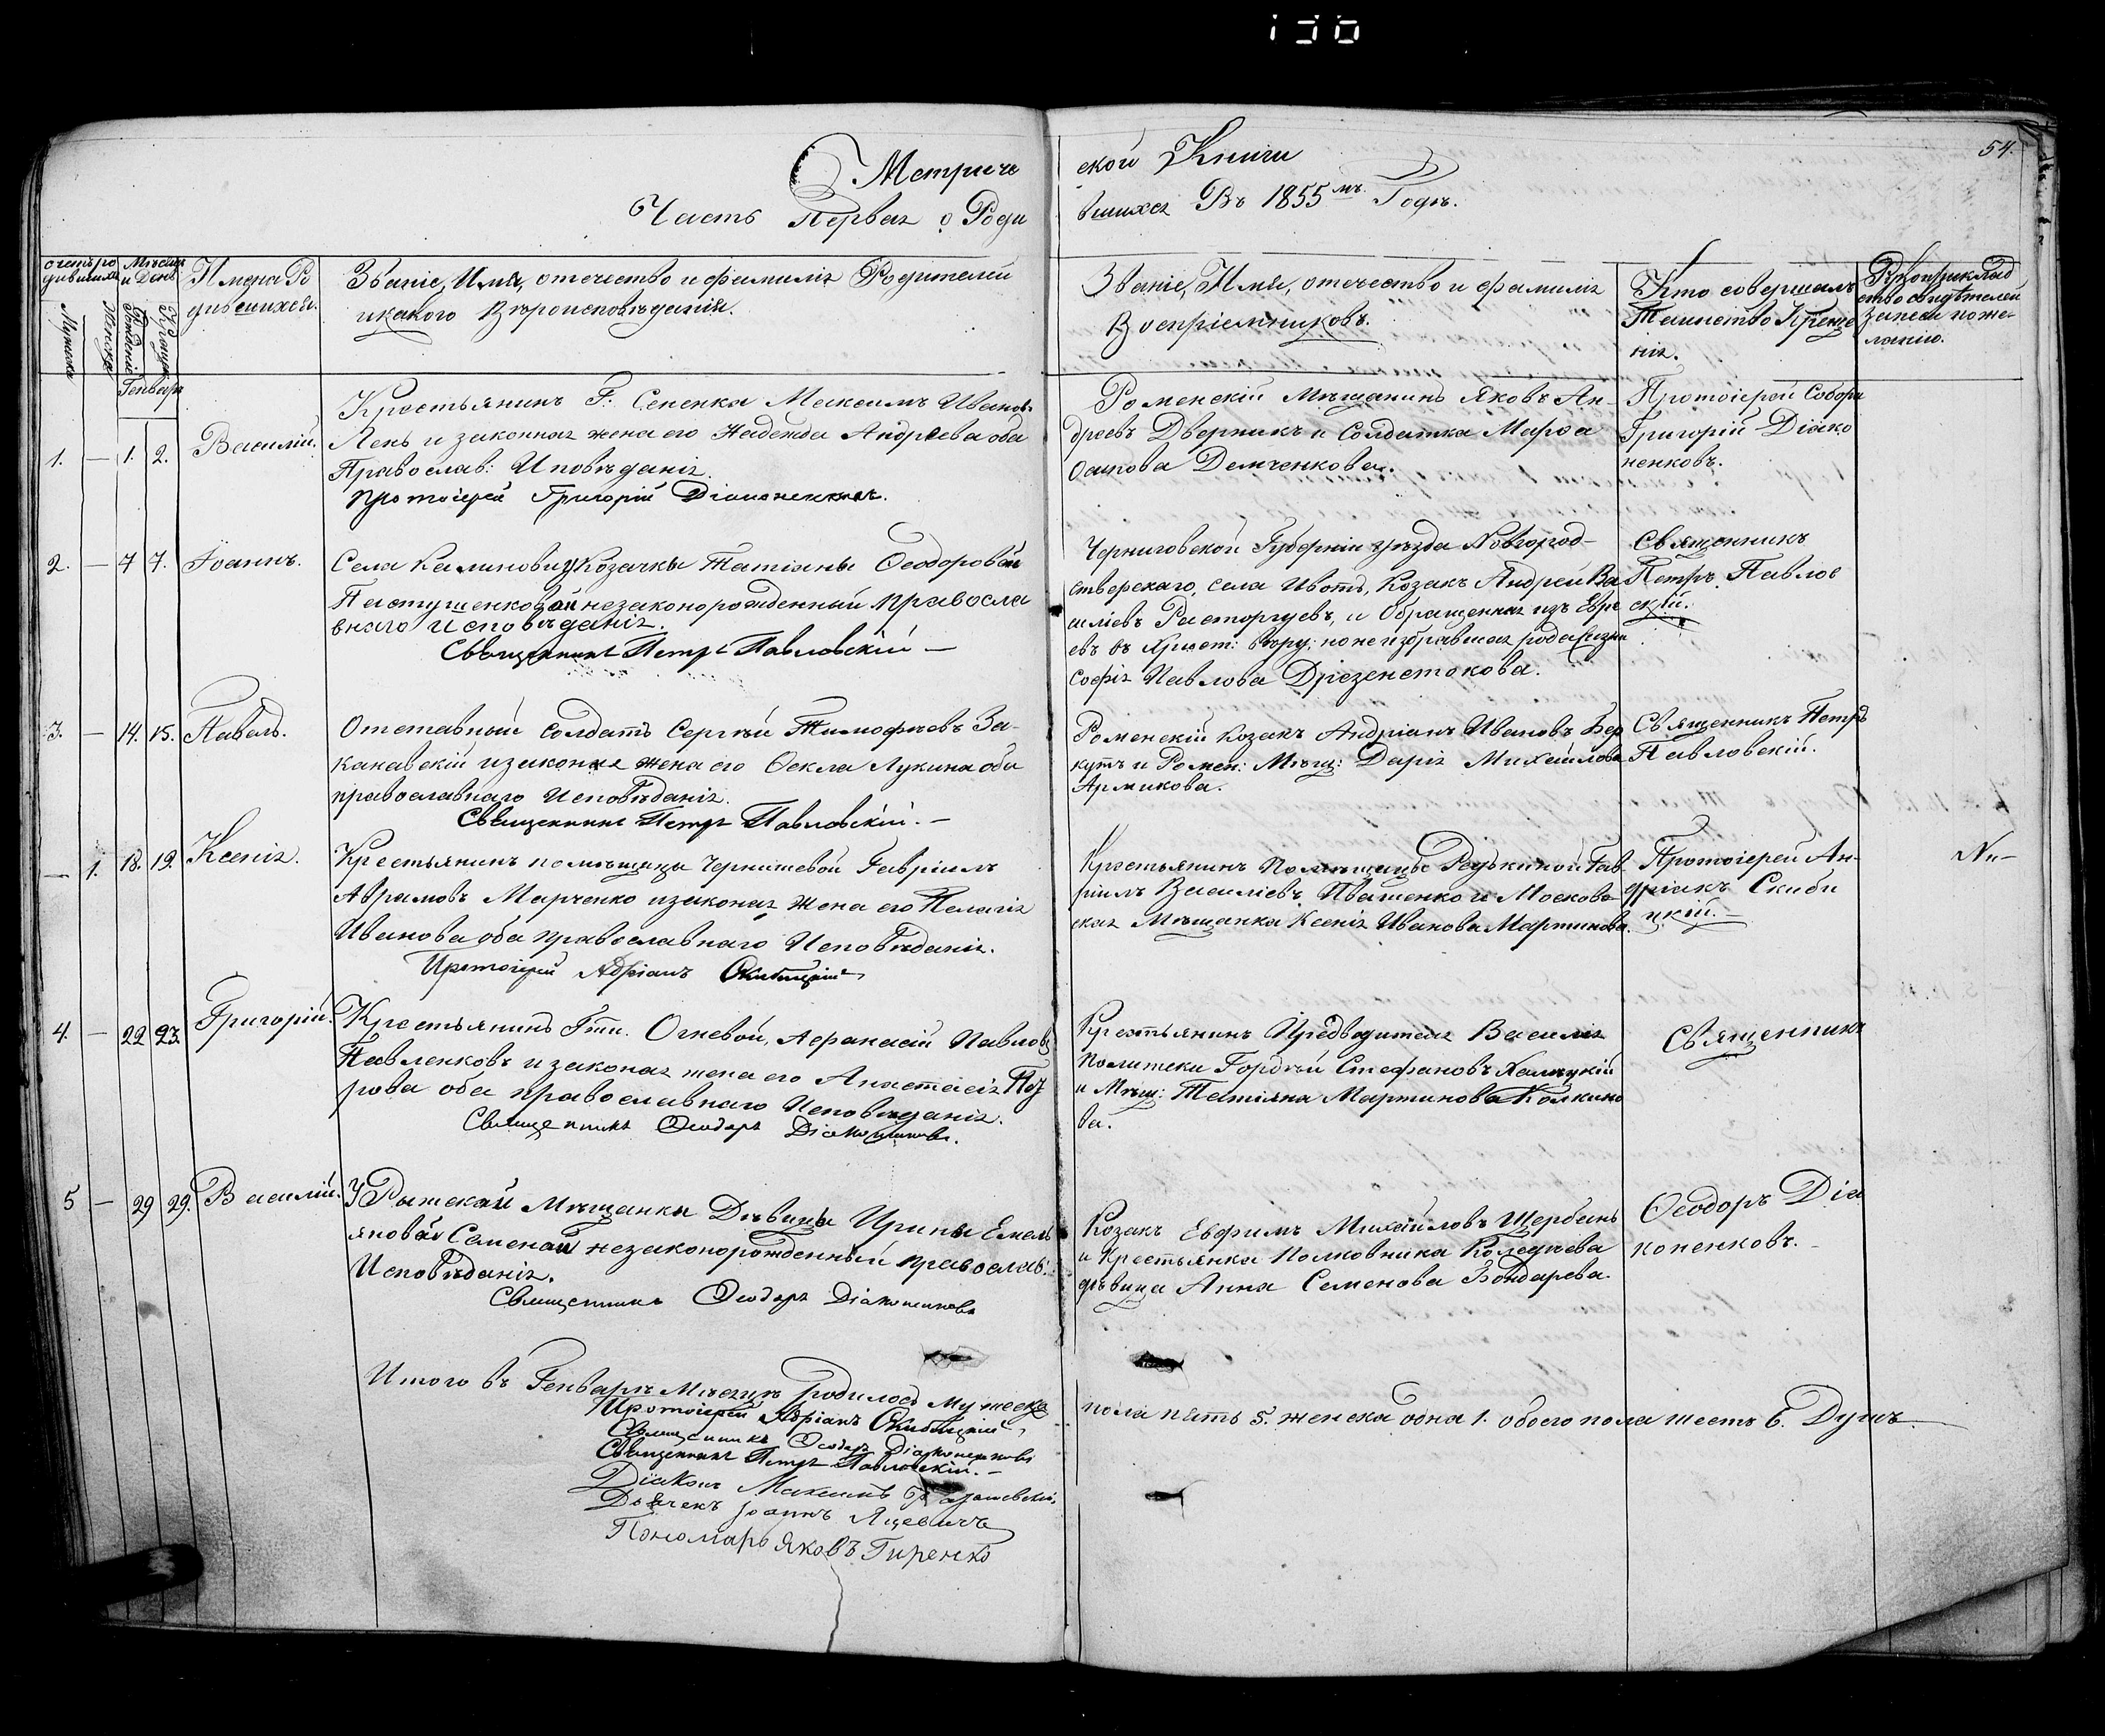 136
54.
Метриче
ской Книги
Часть Первая о Роди
вшихся Въ 1855мъ Годѣ.
Счетъ ро
дившихся
Мужеска
Женска
Мѣсяцъ
и День
Рожденія
Крещенія
Имена Ро
дившихся.
Званіе, Имя, отечество и фамилія Родителей
и какого Вѣроисповѣданія.
Званіе, Имя, отечество и фамилія
Воспріемниковъ.
Кто совершалъ
Таинство Креще
нія.
Рукоприклад
ство свидѣтелей
записи по же-
ланію.
Генваря
1. — 1. 2. Василій.
Крестьянинъ Г: Сененка Максимъ Иванов
Лень и законная жена его Надежда Андреева оба
Православ: Исповѣданія.
Протоіерей Григорій Діаконенковъ.
Роменскій Мѣщанинъ Яковъ Ан-
дреевъ Дверникъ и Солдатка Марфа
Осипова Демченкова.
Протоіерей Собора
Григорій Діако
ненковъ.
2. — 7 7. Іоаннъ.
Села Калиновки Козачки Татіаны Ѳеодоровой
Пастушенковой незаконорожденный Правосла
внаго Исповѣданія.
Священникъ Петръ Павловскій —
Черниговской Губерніи уѣзда Новгород-
сѣверскаго, села Ивотъ, Козакъ Андрей Ва
силіевъ Расторгуевъ, и Обращенная изъ Евре
евъ въ Христ: вѣру, но не избравшая рода жизни
Софія Павлова
Священникъ
Петръ Павлов
скій.
3. — 14. 15. Павелъ.
Отставный Солдатъ Сергѣй Тимофѣевъ За-
канавскій и законая жена его Ѳекла Лукина оба
православнаго Исповѣданія.
Священникъ Петръ Павловскій. —
Роменскій Козакъ Андріанъ Ивановъ Бер
кутъ и Ромен: Мѣщ: Дарія Михайлова
Армикова.
Священникъ Петръ
Павловскій.
— 1. 18. 19. Ксенія.
Крестьянинъ помѣщицы Чернышевой Гавріилъ
Аврамовъ Марченко и законая жена его Пелагія
Иванова оба православнаго Исповѣданія.
Протоіерей Адріанъ Скибицкій
Крестьянинъ Помѣщицы Редькиной Гав
ріилъ Василіевъ Ивашенко и Московс-
кая Мѣщанка Ксенія Иванова Мартинова.
Протоіерей Ан-
дріанъ Скиби
цкій. —
4. — 22 23. Григорій.
Крестьянинъ Гпи. Огневой, Афанасій Павловъ
Павленковъ и законая жена его Анастасія Наз
рова оба православнаго Исповѣданія.
Священникъ Ѳеодоръ Діаконенковъ.
Крестьянинъ Предводителя Василія
Политеки Гордѣй Стефановъ
и Мѣщ: Татіяна Мартинова Колкино
ва.
Священникъ
5 — 29 29. Василій.
У Рыльской Мѣщанки Дѣвицы Ирины Емель
яновой Саменой незаконорожденный православ:
Исповѣданія.
Священникъ Ѳеодоръ Діаконенковъ
Козакъ Евфимъ Михайловъ Щербань
и Крестьянка Полковника Коледѣева
дѣвица Анна Семенова Бондарева.
Ѳеодоръ Діа
коненковъ. —
Итого въ Генварѣ Мѣсяцѣ родилось мужеска
пола пять 5. женска одна 1. обоего пола шесть 6. Душъ
Протоіерей Адріанъ Скибицкій
Священникъ Ѳеодоръ Діаконенковъ
Священникъ Петръ Павловскій. —
Діаконъ Максимъ
Дьячекъ Іоаннъ Яцевичъ
Пономарь Яковъ Гиренко